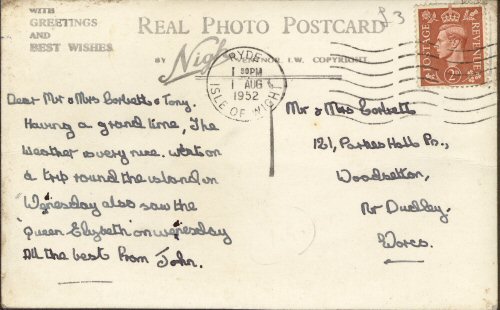 WITH
GREETINGS
AND
BEST WISHES
REAL PHOTO POSTCARD
BY Nigh VENTNOR, I.W. COPYRIGHT
£3
RYDE
30PM
1 AUG
1952
ISLE OF WIGHT
POSTAGE REVENUE
Dear Mr & Mrs Corbett & Tony.
Having a grand time, The
weather is very nice. went on
a trip round the island on
Wenesday also saw the
"Queen Elizabeth" on wenesday
All the best from John.
Mr & Mrs Corbett
121, Parkes Hall Rd.,
Woodsetton,
Nr Dudley,
Worcs.